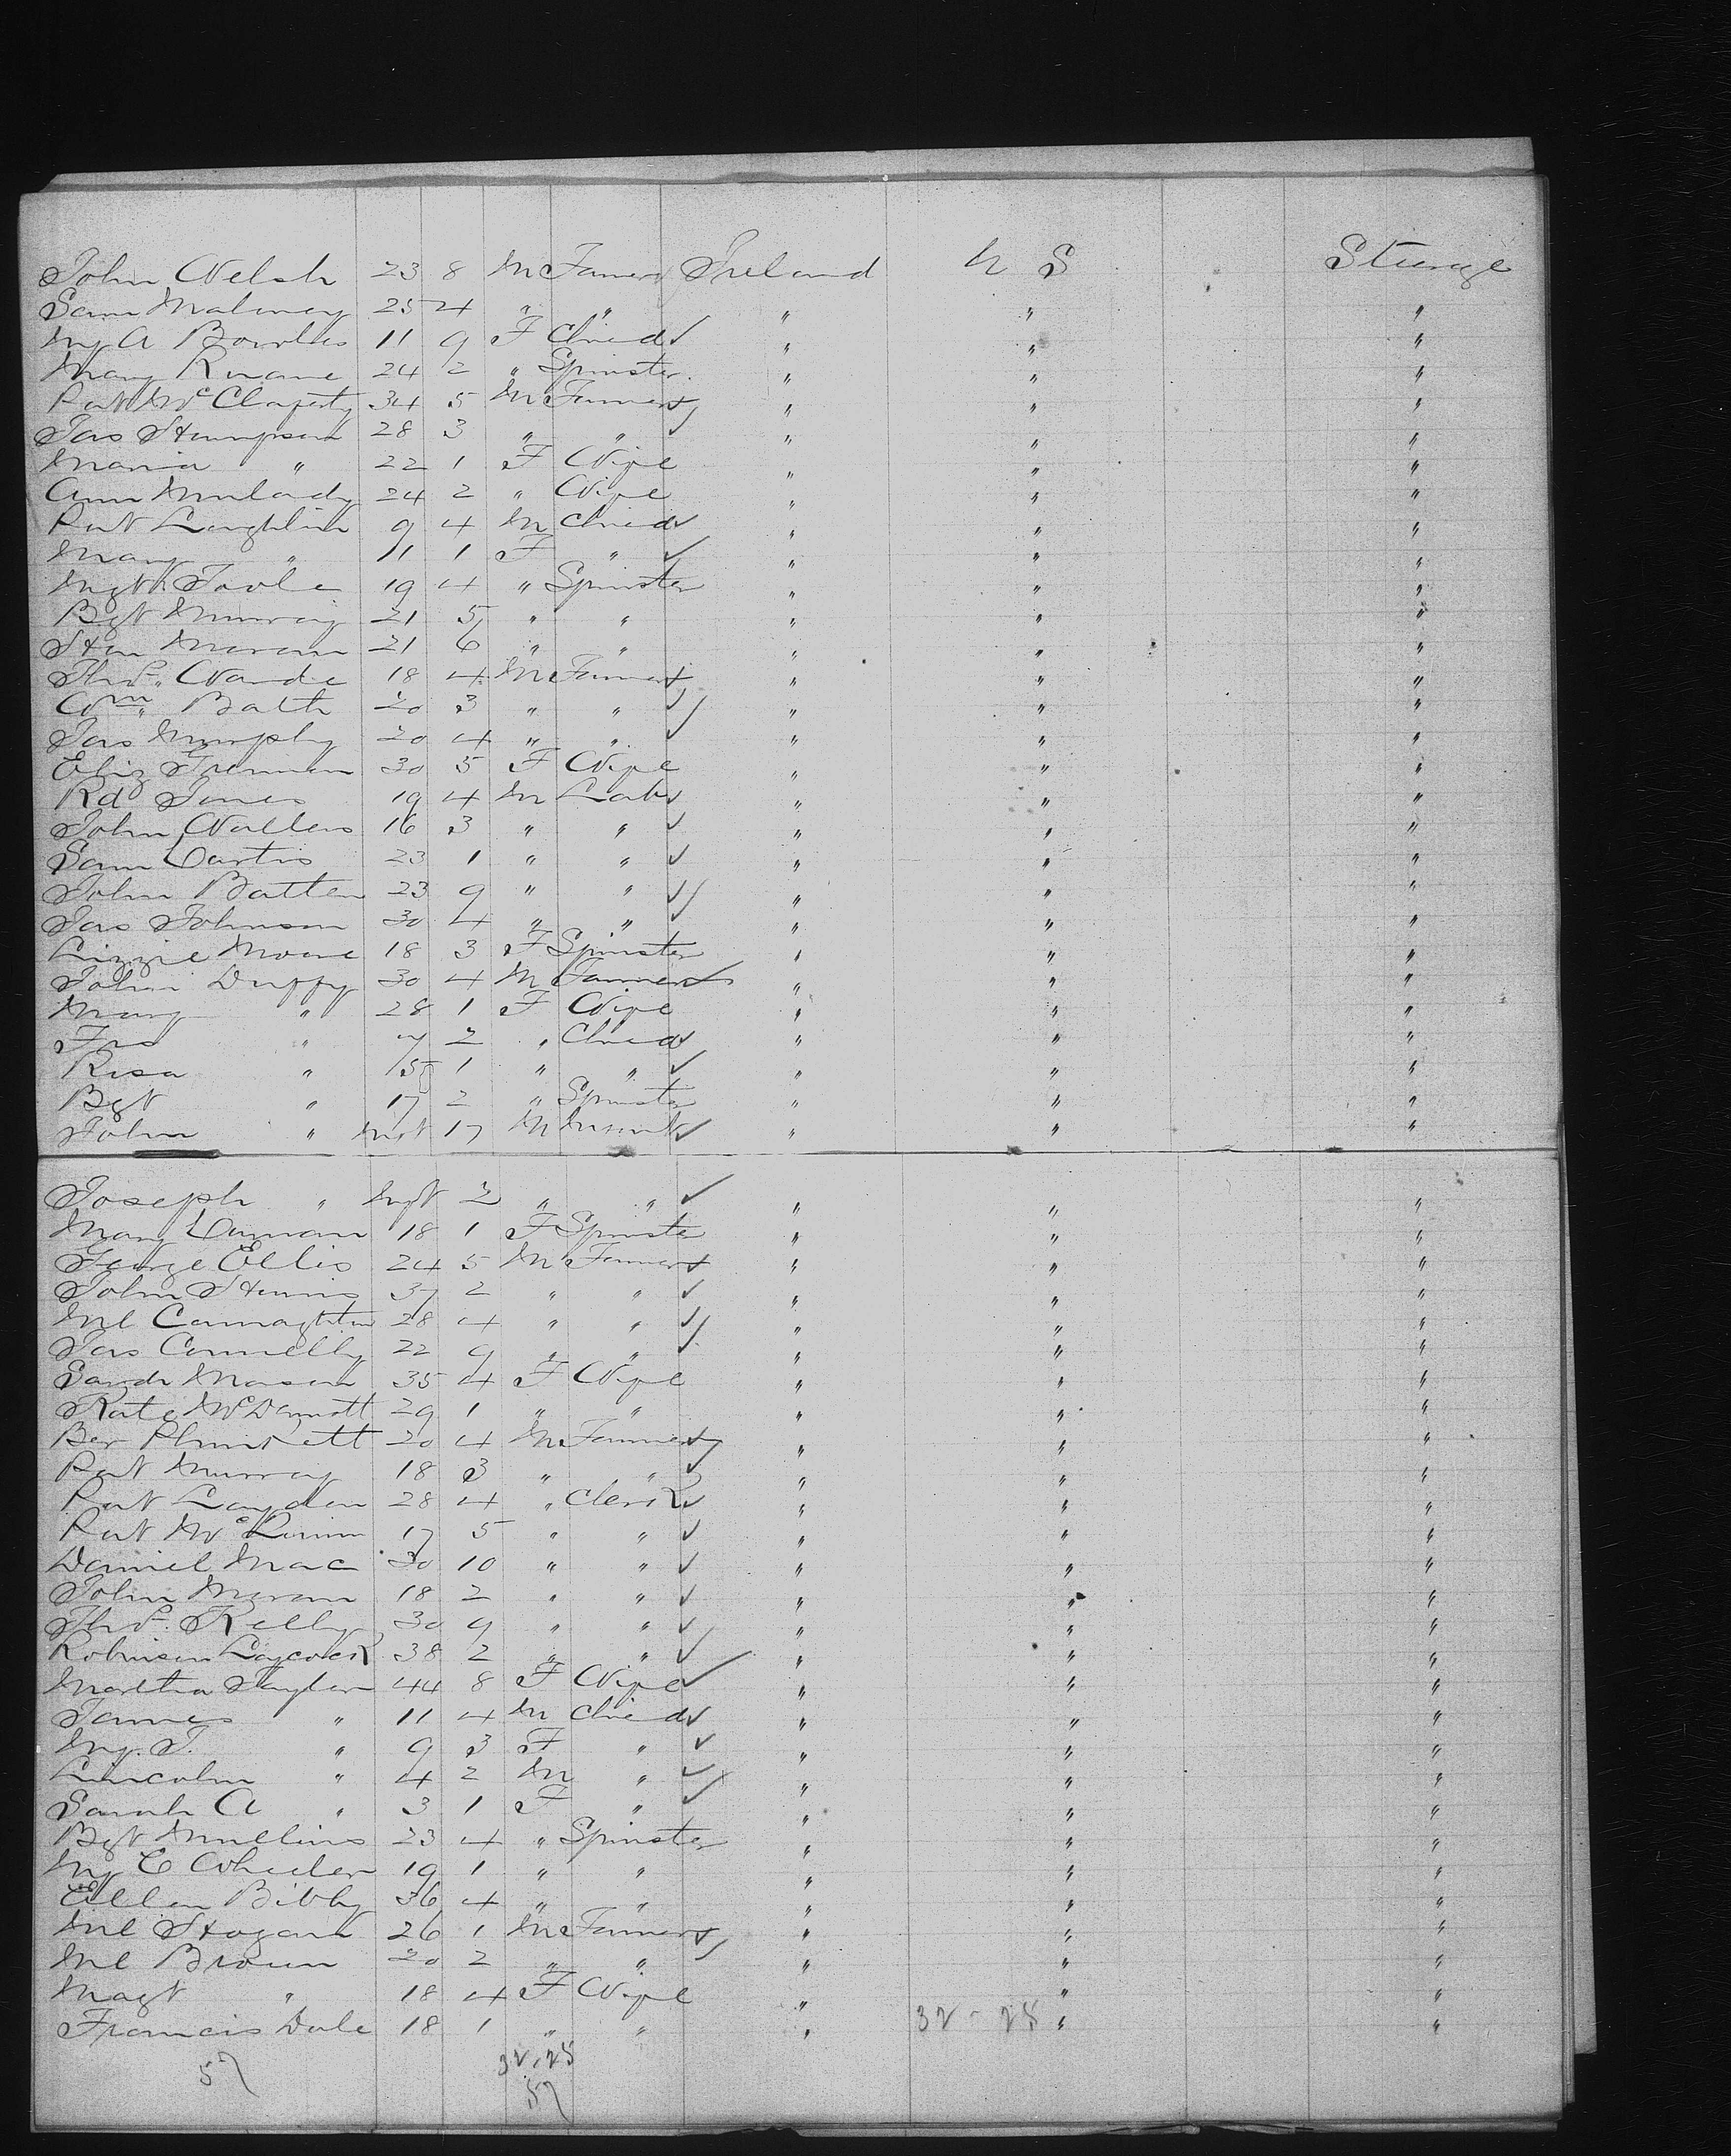 John Welsh 23 8 M Farmer Ireland U S Steerage
Sam Maloney 25 4 " " " " "
Mg A Bowles 11 9 F Child " " "
Mary Ruane 24 2 " Spinster " " "
Pat McClafesty 34 5 M Farmer " " "
Jas Stimpson 28 3 " " " " "
Maria " 22 1 F Wife " " "
Ann Mulady 24 2 " Wife " " "
Pat Laughlin 9 4 M Child " " "
Mary " 11 1 F " " " "
Mgt Toole 19 4 " Spinster " " "
Bgt Murray 21 5 " " " " "
Moran 21 6 " " " " "
Thos. Warde 18 4 M Farmer " " "
Wm. Bath 20 3 " " " " "
Jas Murphy 20 4 " " " " "
Eliz Freeman 30 5 F Wife " " "
Rd Jones 19 4 M Lab " " "
John Wallers 16 3 " " " " "
Sam Curtis 23 1 " " " " "
John Batten 23 9 " " " " "
Jas Johnson 30 4 " " " " "
Lizzie Moore 18 3 F Spinster " " "
John Duffy 30 4 M Farmer " " "
Mary " 28 1 F Wife " " "
Frs " 7 2 " Child " " "
Rosa " 1 " " " " "
Bgt " 17 2 " Spinster " " "
John " Inft 17 M Infant " " "
Joseph " Inft 2 " " " " "
Mary 18 1 F Spinster " " "
George Ellis 24 5 M Farmer " " "
John 37 2 " " " " "
Ml Connaghton 28 4 " " " " "
Jas Connelly 22 9 " " " " "
Sarah Mason 35 4 F Wife " " "
Kate McDermott 29 1 " " " " "
Ber Plunkett 20 4 M Farmer " " "
Pat Murray 18 3 " " " " "
Pat Laydon 28 4 " Clerk " " "
Pat 17 5 " " " " "
Daniel Mac 30 10 " " " " "
John Moran 18 2 " " " " "
Thos. Kelly 30 9 " " " " "
Robinson Laycock 38 2 " " " " "
Martha Taylor 44 8 F Wife " " "
James " 11 4 M Child " " "
Mg. J. " 9 3 F " " " "
Lincoln " 4 2 M " " " "
Sarah A " 3 1 F " " " "
Bgt Mullins 23 4 " Spinster " " "
Mg E Wheeler 19 1 " " " " "
Ellen Bibby 36 4 " " " " "
Ml Hogan 26 1 M Farmer " " "
Ml Brown 20 2 " " " " "
Magt " 18 4 F Wife " " "
Francis Dale 18 1 " " " 32-25 " "
57 32-25
57